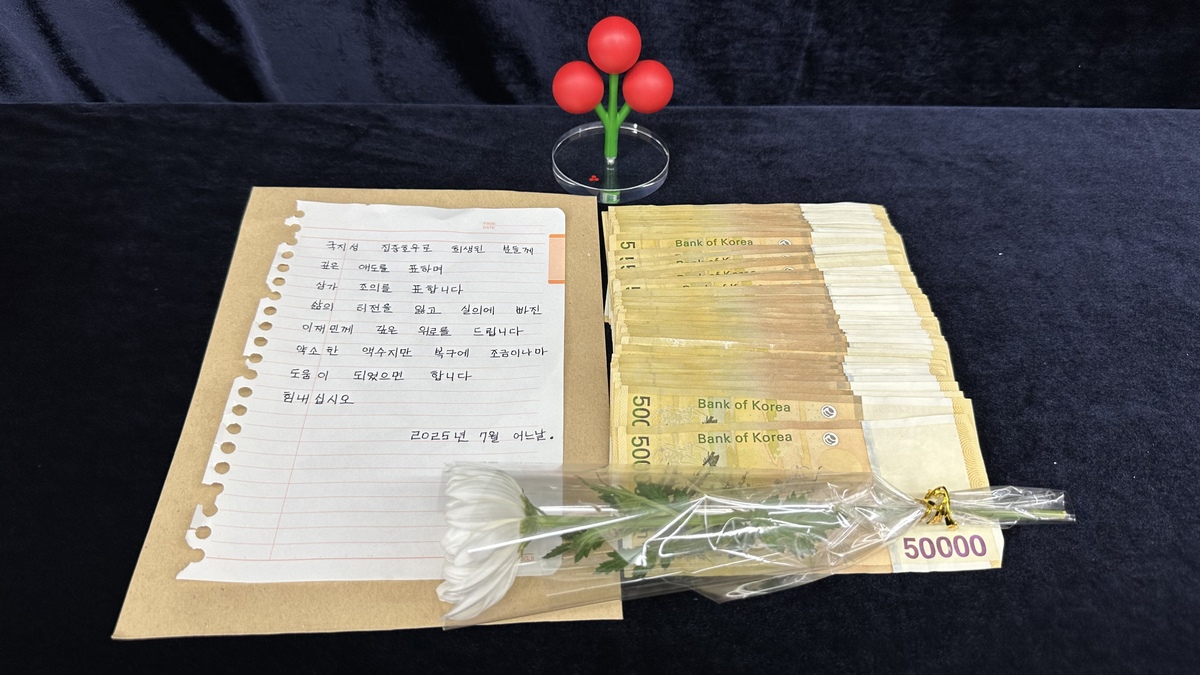 국지성 집중호우로 희생된 분들께
깊은 애도를 표하며
삼가 조의를 표합니다
삶의 터전을 잃고 실의에 빠진
이재민께 깊은 위로를 드립니다
약소한 액수지만 복구에 조금이나마
도움이 되었으면 합니다
힘내십시오
2025년 7월 어느날.
Bank of Korea
Bank of Korea
500 Bank of Korea
500 Bank of Korea
50000